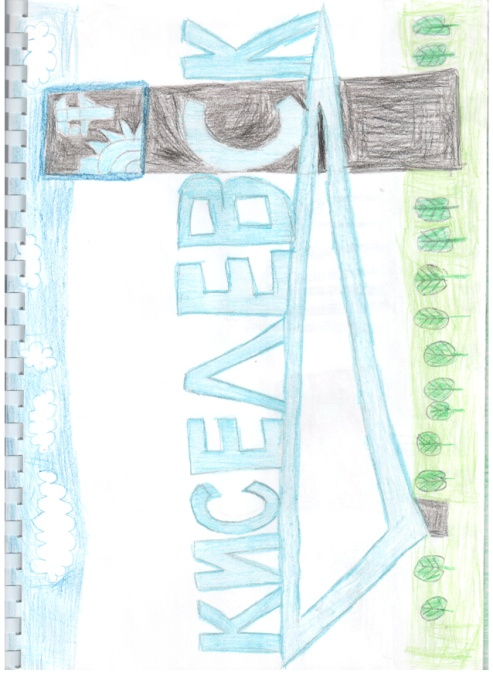 КИСЕЛЕВСК